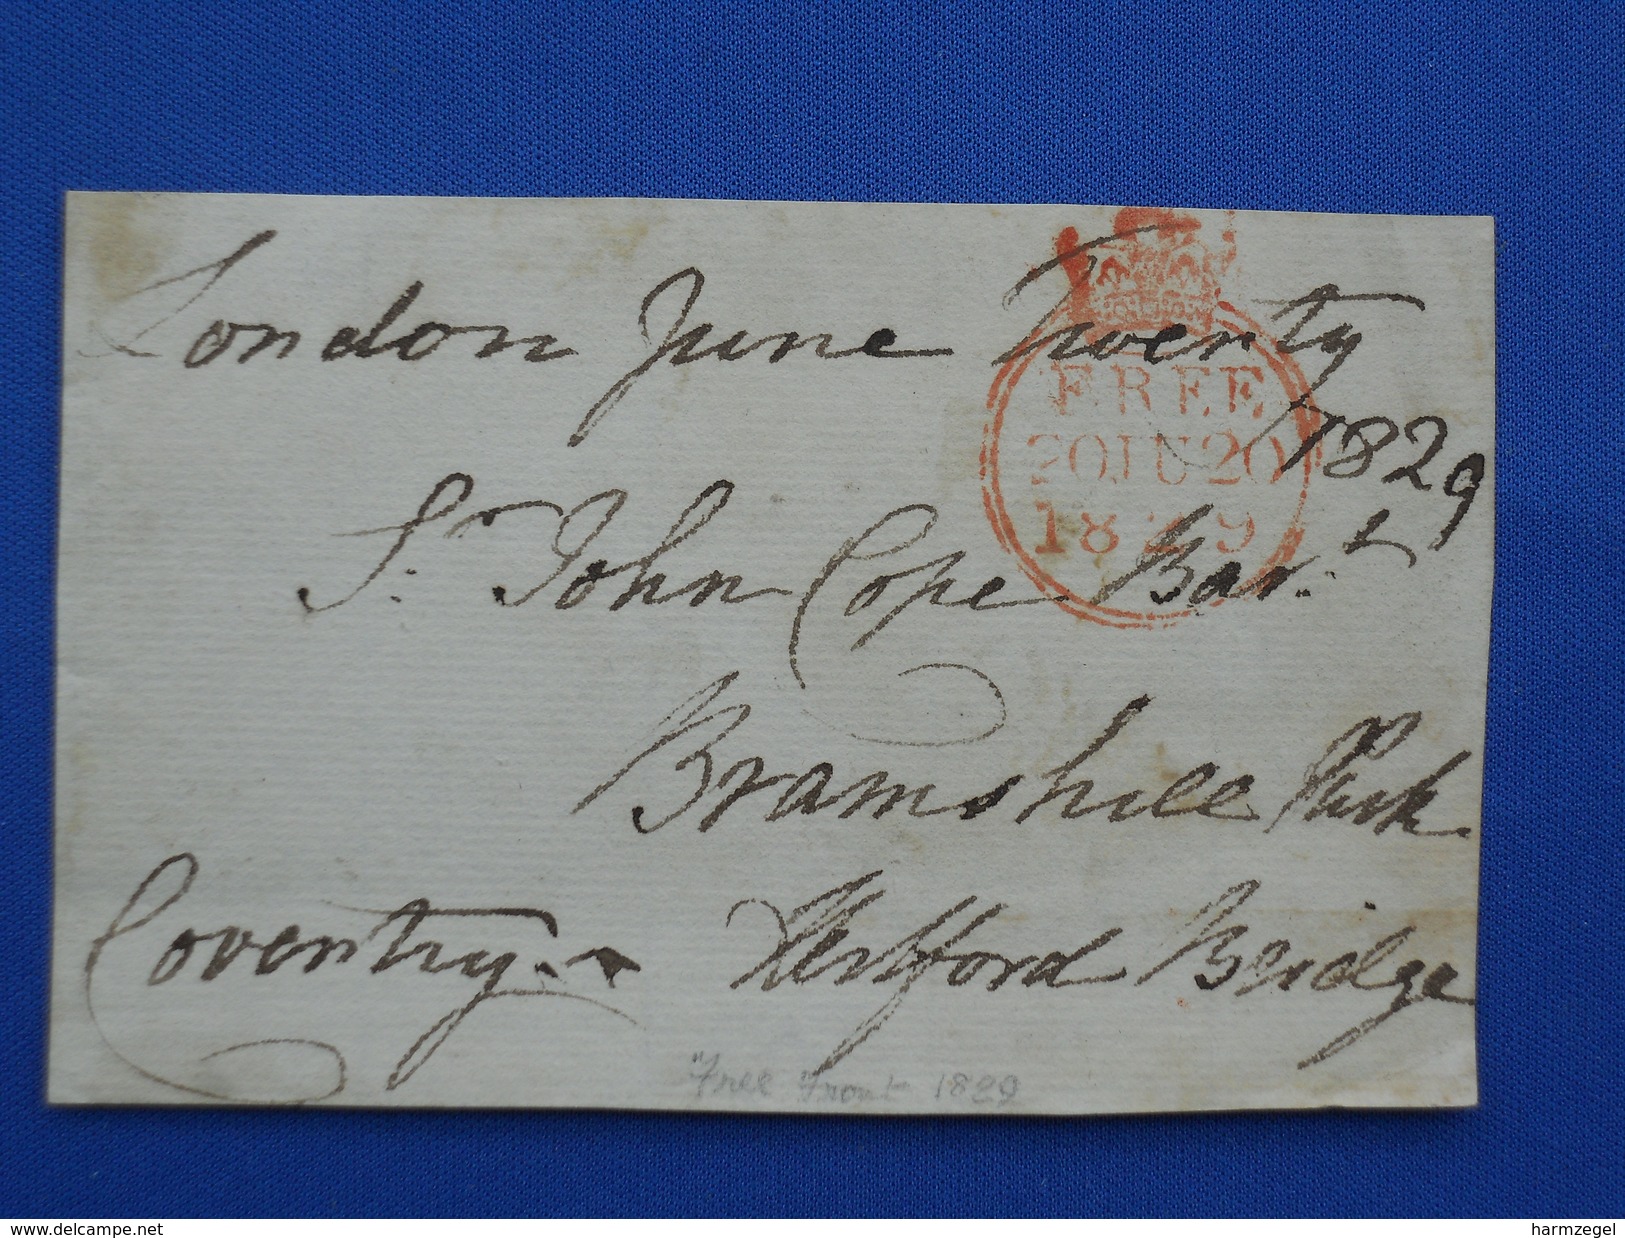 London June Twenty
1829
FREE
20 JU 20
1829
Sr. John Cope Bart.
Bramshill Park
Hertford Bridge
Coventry
"Free Front 1829
www.delcampe.net
harmzegel